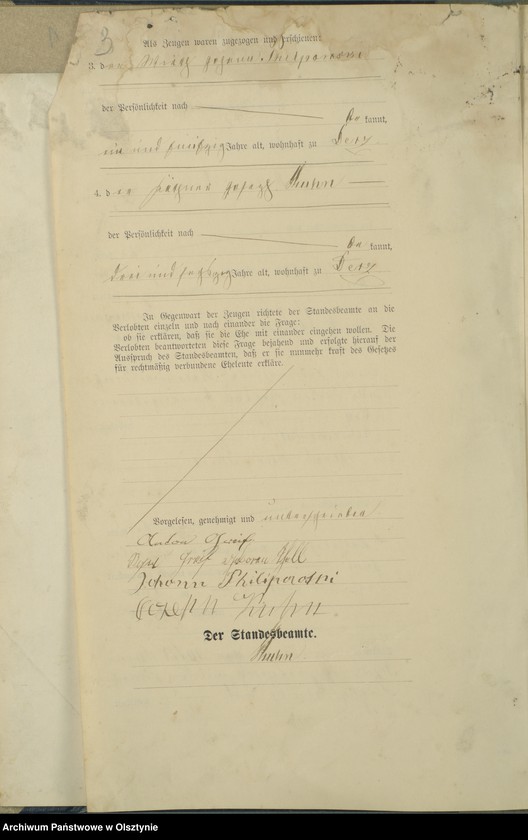 3
Als Zeugen waren zugezogen und erschienen:
3. der Johann Philiporoski
der Persönlichkeit nach
bekannt,
ein und fünfzig Jahre alt, wohnhaft zu Derz
4. der Joseph Kuhn
der Persönlichkeit nach
bekannt,
drei und sechszig Jahre alt, wohnhaft zu Derz
In Gegenwart der Zeugen richtete der Standesbeamte an die
Verlobten einzeln und nach einander die Frage:
ob sie erklären, daß sie die Ehe mit einander eingehen wollen. Die
Verlobten beantworteten diese Frage bejahend und erfolgte hierauf der
Ausspruch des Standesbeamten, daß er sie nunmehr kraft des Gesetzes
für rechtmäßig verbundene Eheleute erkläre.
Vorgelesen, genehmigt und unterschrieben
Anton
geboren
Johann Philiporoski
Joseph Kuhn.
Der Standesbeamte.
Kuhn
Archiwum Państwowe w Olsztynie